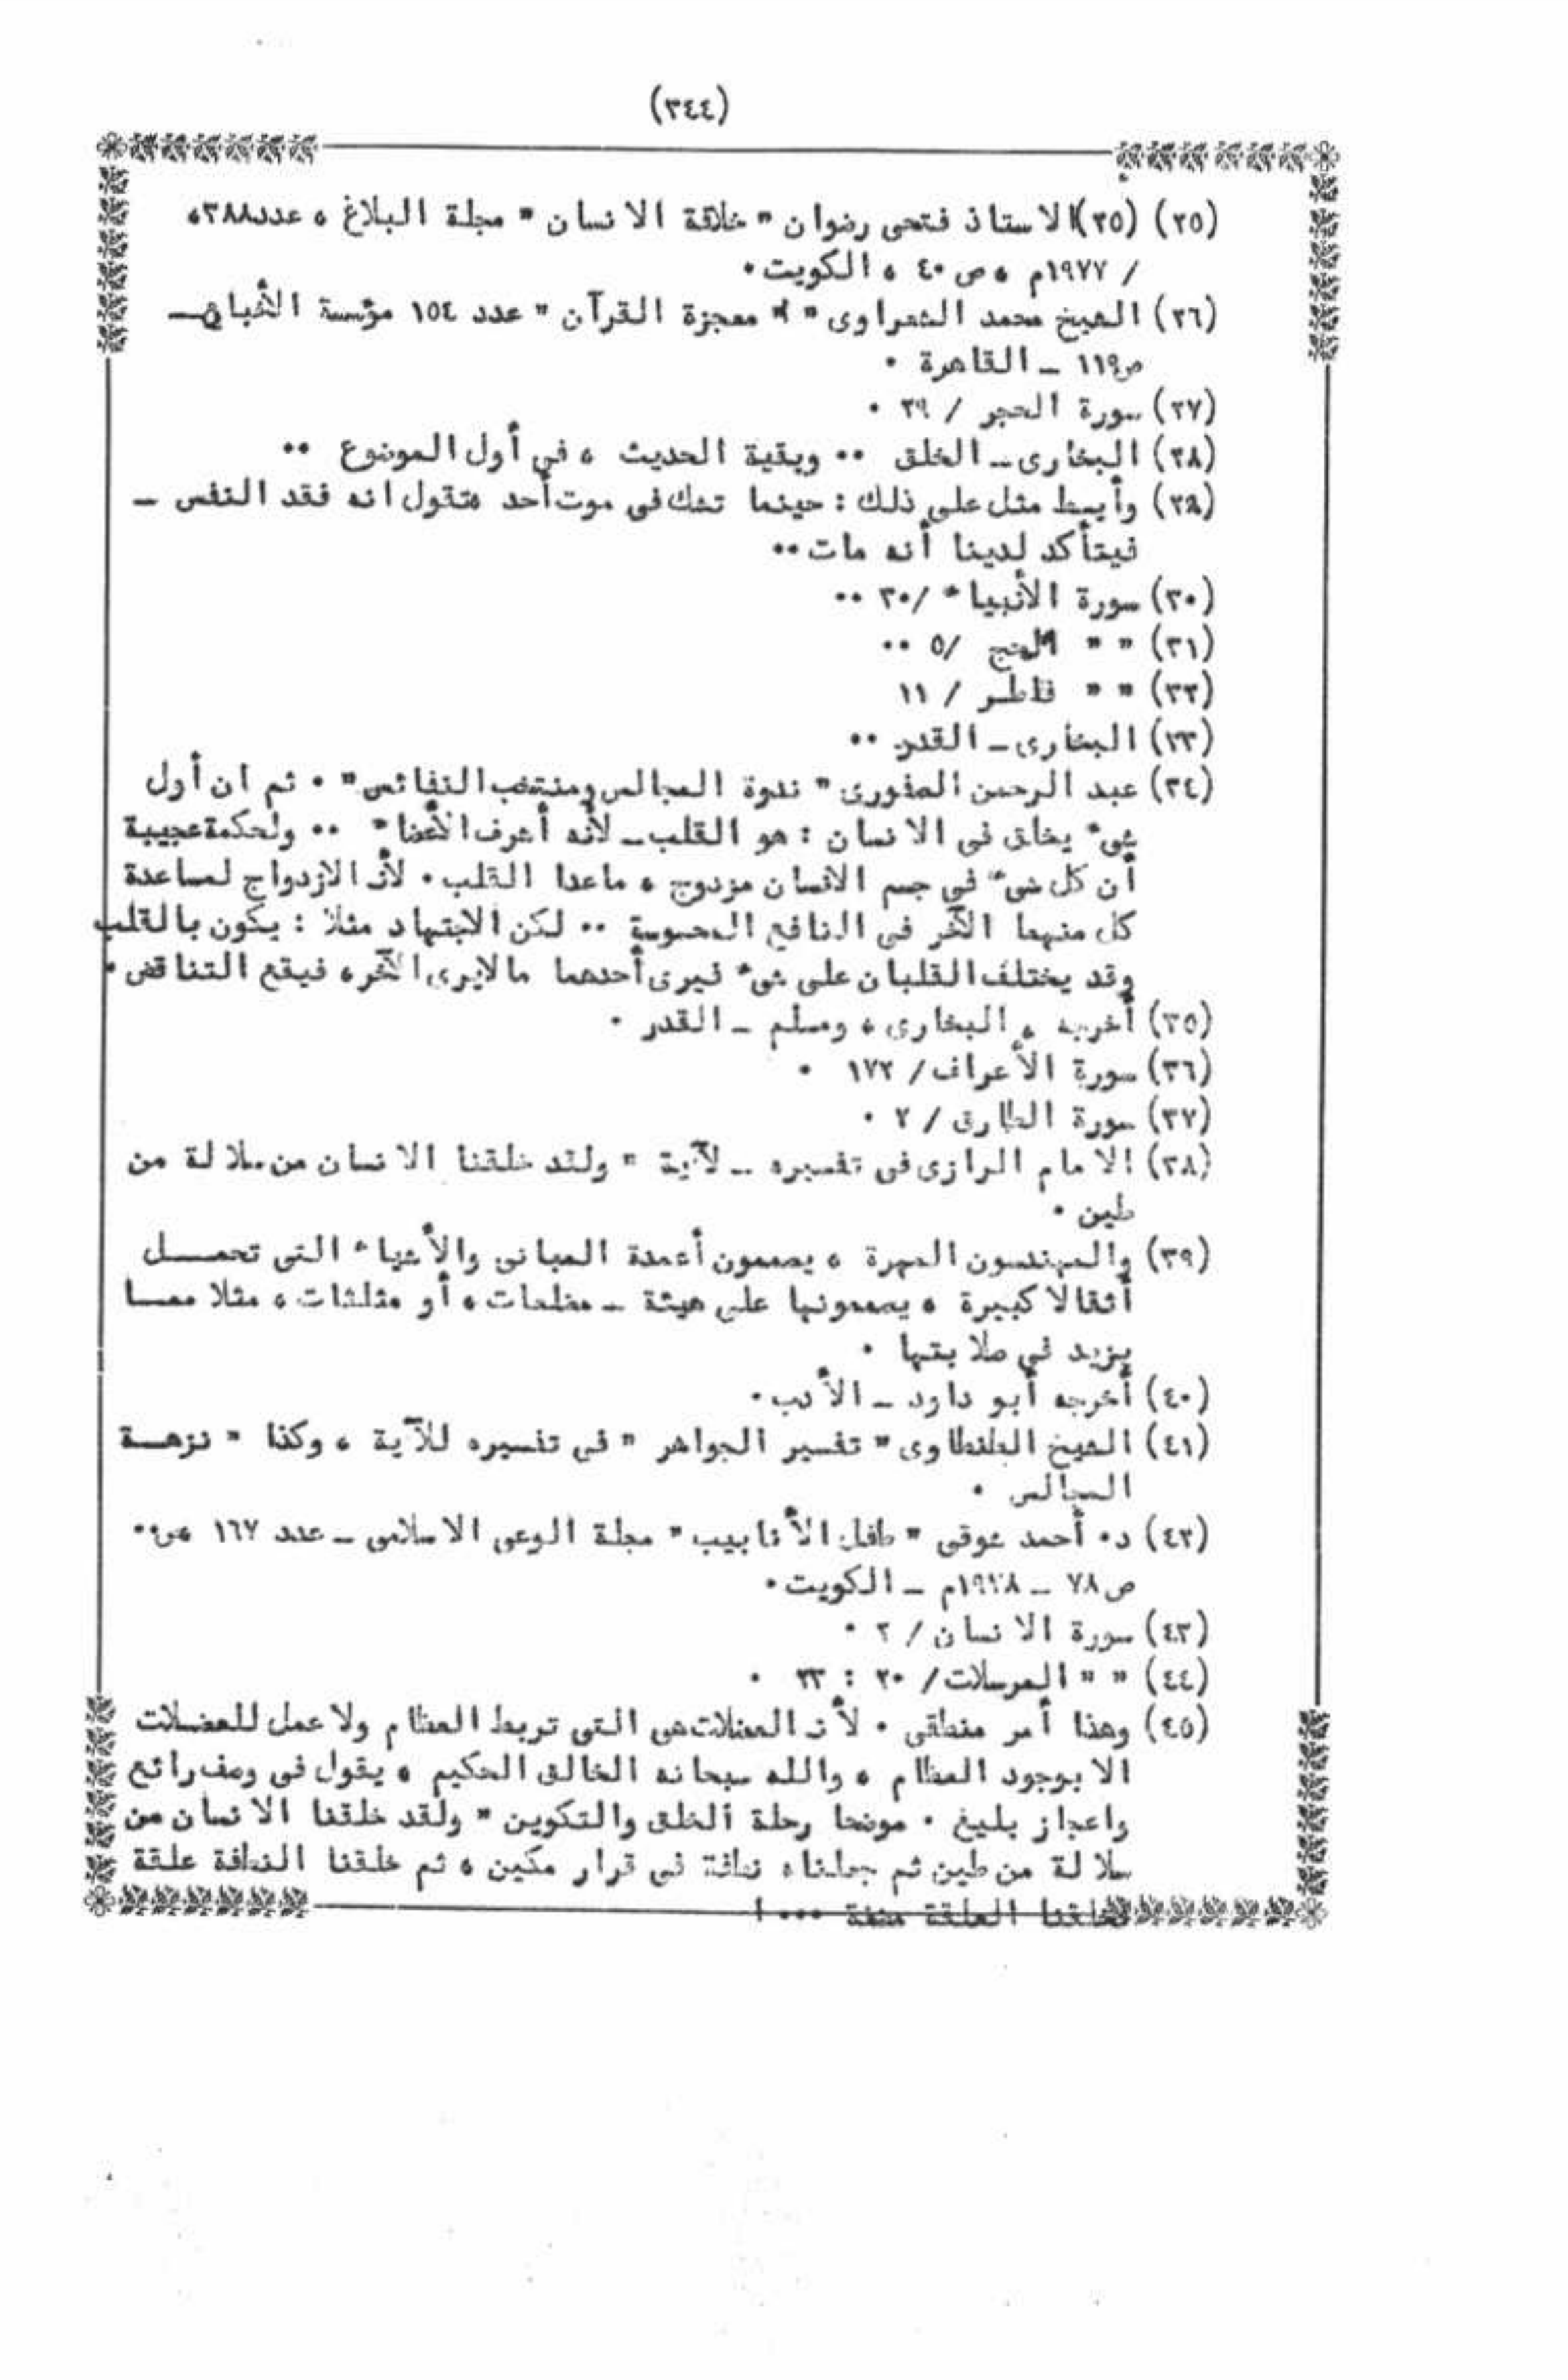 (٣٤٤)
(٢٥) (٢٥) الاستاذ فتحى رضوان " خلافة الانسان " مجلة البلاغ ، عدد ٣٨٨ ،
/ ١٩٧٧م ، ص ٤٠ ، الكويت .
(٢٦) الشيخ محمد الشعراوى " معجزة القرآن " عدد ١٥٤ مؤسسة الأخبار ـ
ص١١٩ ـ القاهرة .
(٢٧) سورة الحجر / ٢٩ .
(٢٨) البخارى ـ الخلق .. وبقية الحديث ، فى أول الموضوع ..
(٢٩) وأبسط مثل على ذلك : حينما تشك فى موت أحد فتقول انه فقد النفس ـ
فيتأكد لدينا أنه مات ..
(٣٠) سورة الأنبياء / ٣٠ ..
(٣١) " " الحج / ٥ ..
(٣٢) " " فاطر / ١١
(٣٣) البخارى ـ القدر ..
(٣٤) عبد الرحمن الصفورى " ندوة المجالس ومنتخب النفائس " . ثم ان أول
شىء يخلق فى الانسان : هو القلب ـ لأنه أشرف الأعضاء .. ولحكمة عجيبة
أن كل شىء فى جسم الانسان مزدوج ، ماعدا القلب . لأن الازدواج لمساعدة
كل منهما الآخر فى النافع المحسوسة .. لكن الاجتهاد مثلا : يكون بالقلب
وقد يختلف القلبان على شىء فيرى أحدهما مالايرى الآخر ، فيقع التناقض .
(٣٥) أخرجه ، البخارى ، ومسلم ـ القدر .
(٣٦) سورة الأعراف / ١٧٢ .
(٣٧) سورة الطارق / ٧ .
(٣٨) الامام الرازى فى تفسيره ـ لآية " ولقد خلقنا الانسان من سلالة من
طين .
(٣٩) والمهندسون المهرة ، يصممون أعمدة المبانى والأشياء التى تحمــل
أثقالا كبيرة ، يصممونها على هيئة ـ مضلعات ، أو مثلثات ، مثلا ممــا
يزيد فى صلابتها .
(٤٠) أخرجه أبو داود ـ الأدب .
(٤١) الشيخ الطنطاوى " تفسير الجواهر " فى تفسيره للآية ، وكذا " نزهــة
المجالس .
(٤٢) د . أحمد شوقى " طفل الأنابيب " مجلة الوعى الاسلامى ـ عدد ١٦٧
ص٧٨ ـ ١٩٧٨م ـ الكويت .
(٤٣) سورة الانسان / ٢ .
(٤٤) " " المرسلات / ٢٠ : ٢٣ .
(٤٥) وهذا أمر منطقى . لأن العضلات هى التى تربط العظام ولا عمل للعضلات
الا بوجود العظام ، والله سبحانه الخالق الحكيم ، يقول فى وصف رائع
واعجاز بليغ . موضحا رحلة الخلق والتكوين " ولقد خلقنا الانسان من
سلالة من طين ثم جعلناه نطفة فى قرار مكين ، ثم خلقنا النطفة علقة
فخلقنا العلقة مضغة ...